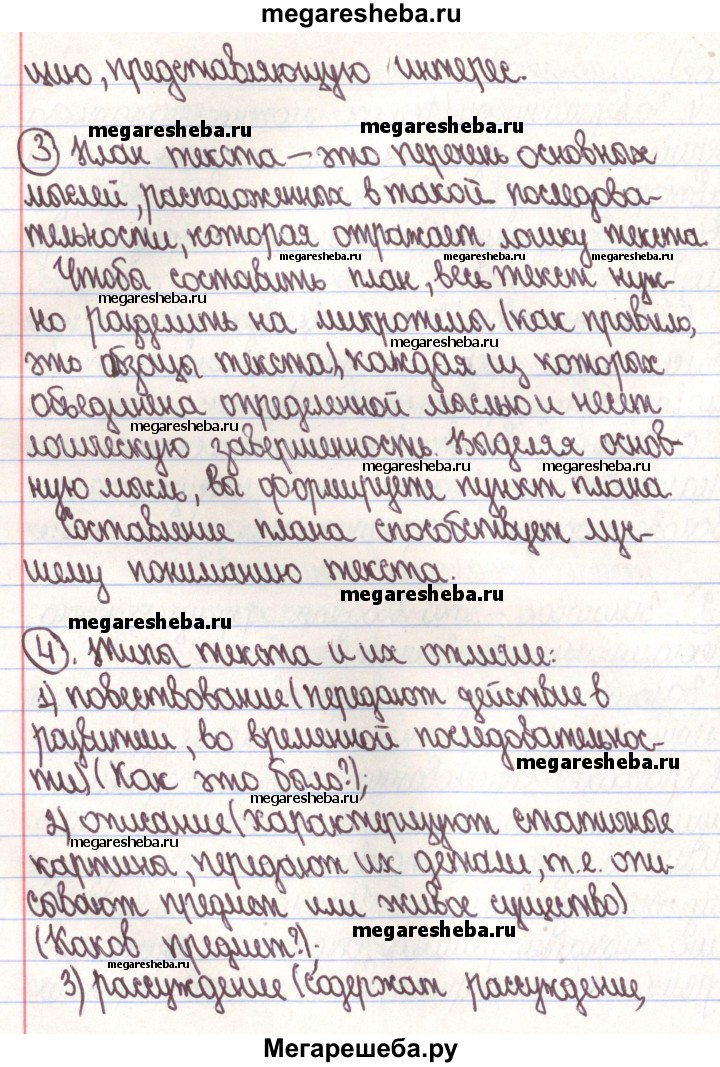 megaresheba.ru
цию, представляющую интерес.
megaresheba.ru megaresheba.ru
3 План текста – это перечень основных
мыслей, расположенных в такой последова-
тельности, которая отражает логику текста.
megaresheba.ru megaresheba.ru megaresheba.ru
Чтобы составить план, весь текст нуж-
megaresheba.ru
но разделить на микротемы (как правило,
это абзацы текста), каждая из которых
объединена определенной мыслью и несет
megaresheba.ru
логическую завершенность. Выделяя основ-
megaresheba.ru megaresheba.ru
ную мысль, вы формируете пункт плана.
Составление плана способствует луч-
шему пониманию текста.
megaresheba.ru
megaresheba.ru
4. Типы текста и их отличие:
1) повествование (передают действие в
развитии, во временной последовательнос-
megaresheba.ru
ти) (Как это было?);
megaresheba.ru
2) описание (характеризуют статичные
megaresheba.ru
картины, передают их детали, т.е. опи-
сывают предмет или живое существо)
megaresheba.ru
(Каков предмет?);
megaresheba.ru
3) рассуждение (содержат рассуждение,
megaresheba.ru megaresheba.ru
Мегарешеба.ру